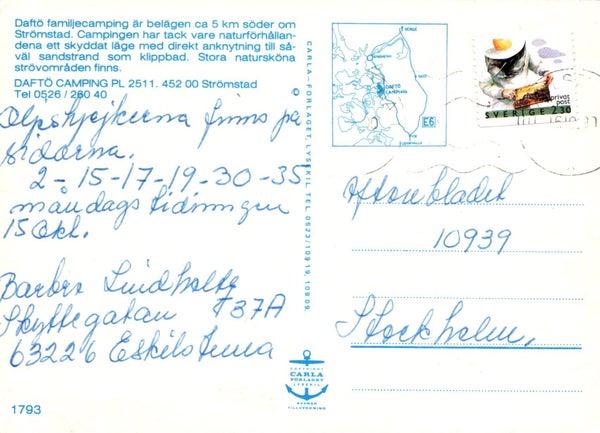 Daftö familjecamping är belägen ca 5 km söder om
Strömstad. Campingen har tack vare naturförhållan-
dena ett skyddat läge med direkt anknytning till så-
väl sandstrand som klippbad. Stora natursköna
strövområden finns.
DAFTÖ CAMPING PL 2511. 452 00 Strömstad
Tel 0526 / 260 40
finns på
sidorna.
2-15-17-19-30-35
måndags tidningen
15 Okt.
Barbro Lindholtz
Skyttegatan 37A
63226 Eskilstuna
1793
©
CARLA-FÖRLAGET, LYSEKIL TEL. 0523/10919, 10909.
COPYRIGHT
CARLA
FÖRLAGET
LYSEKIL
SVENSK
TILLVERKNING
NORGE
DAFTÖ
CAMPING
E6
privat
post
SVERIGE 2.30
Aftonbladet
10939
Stockholm.